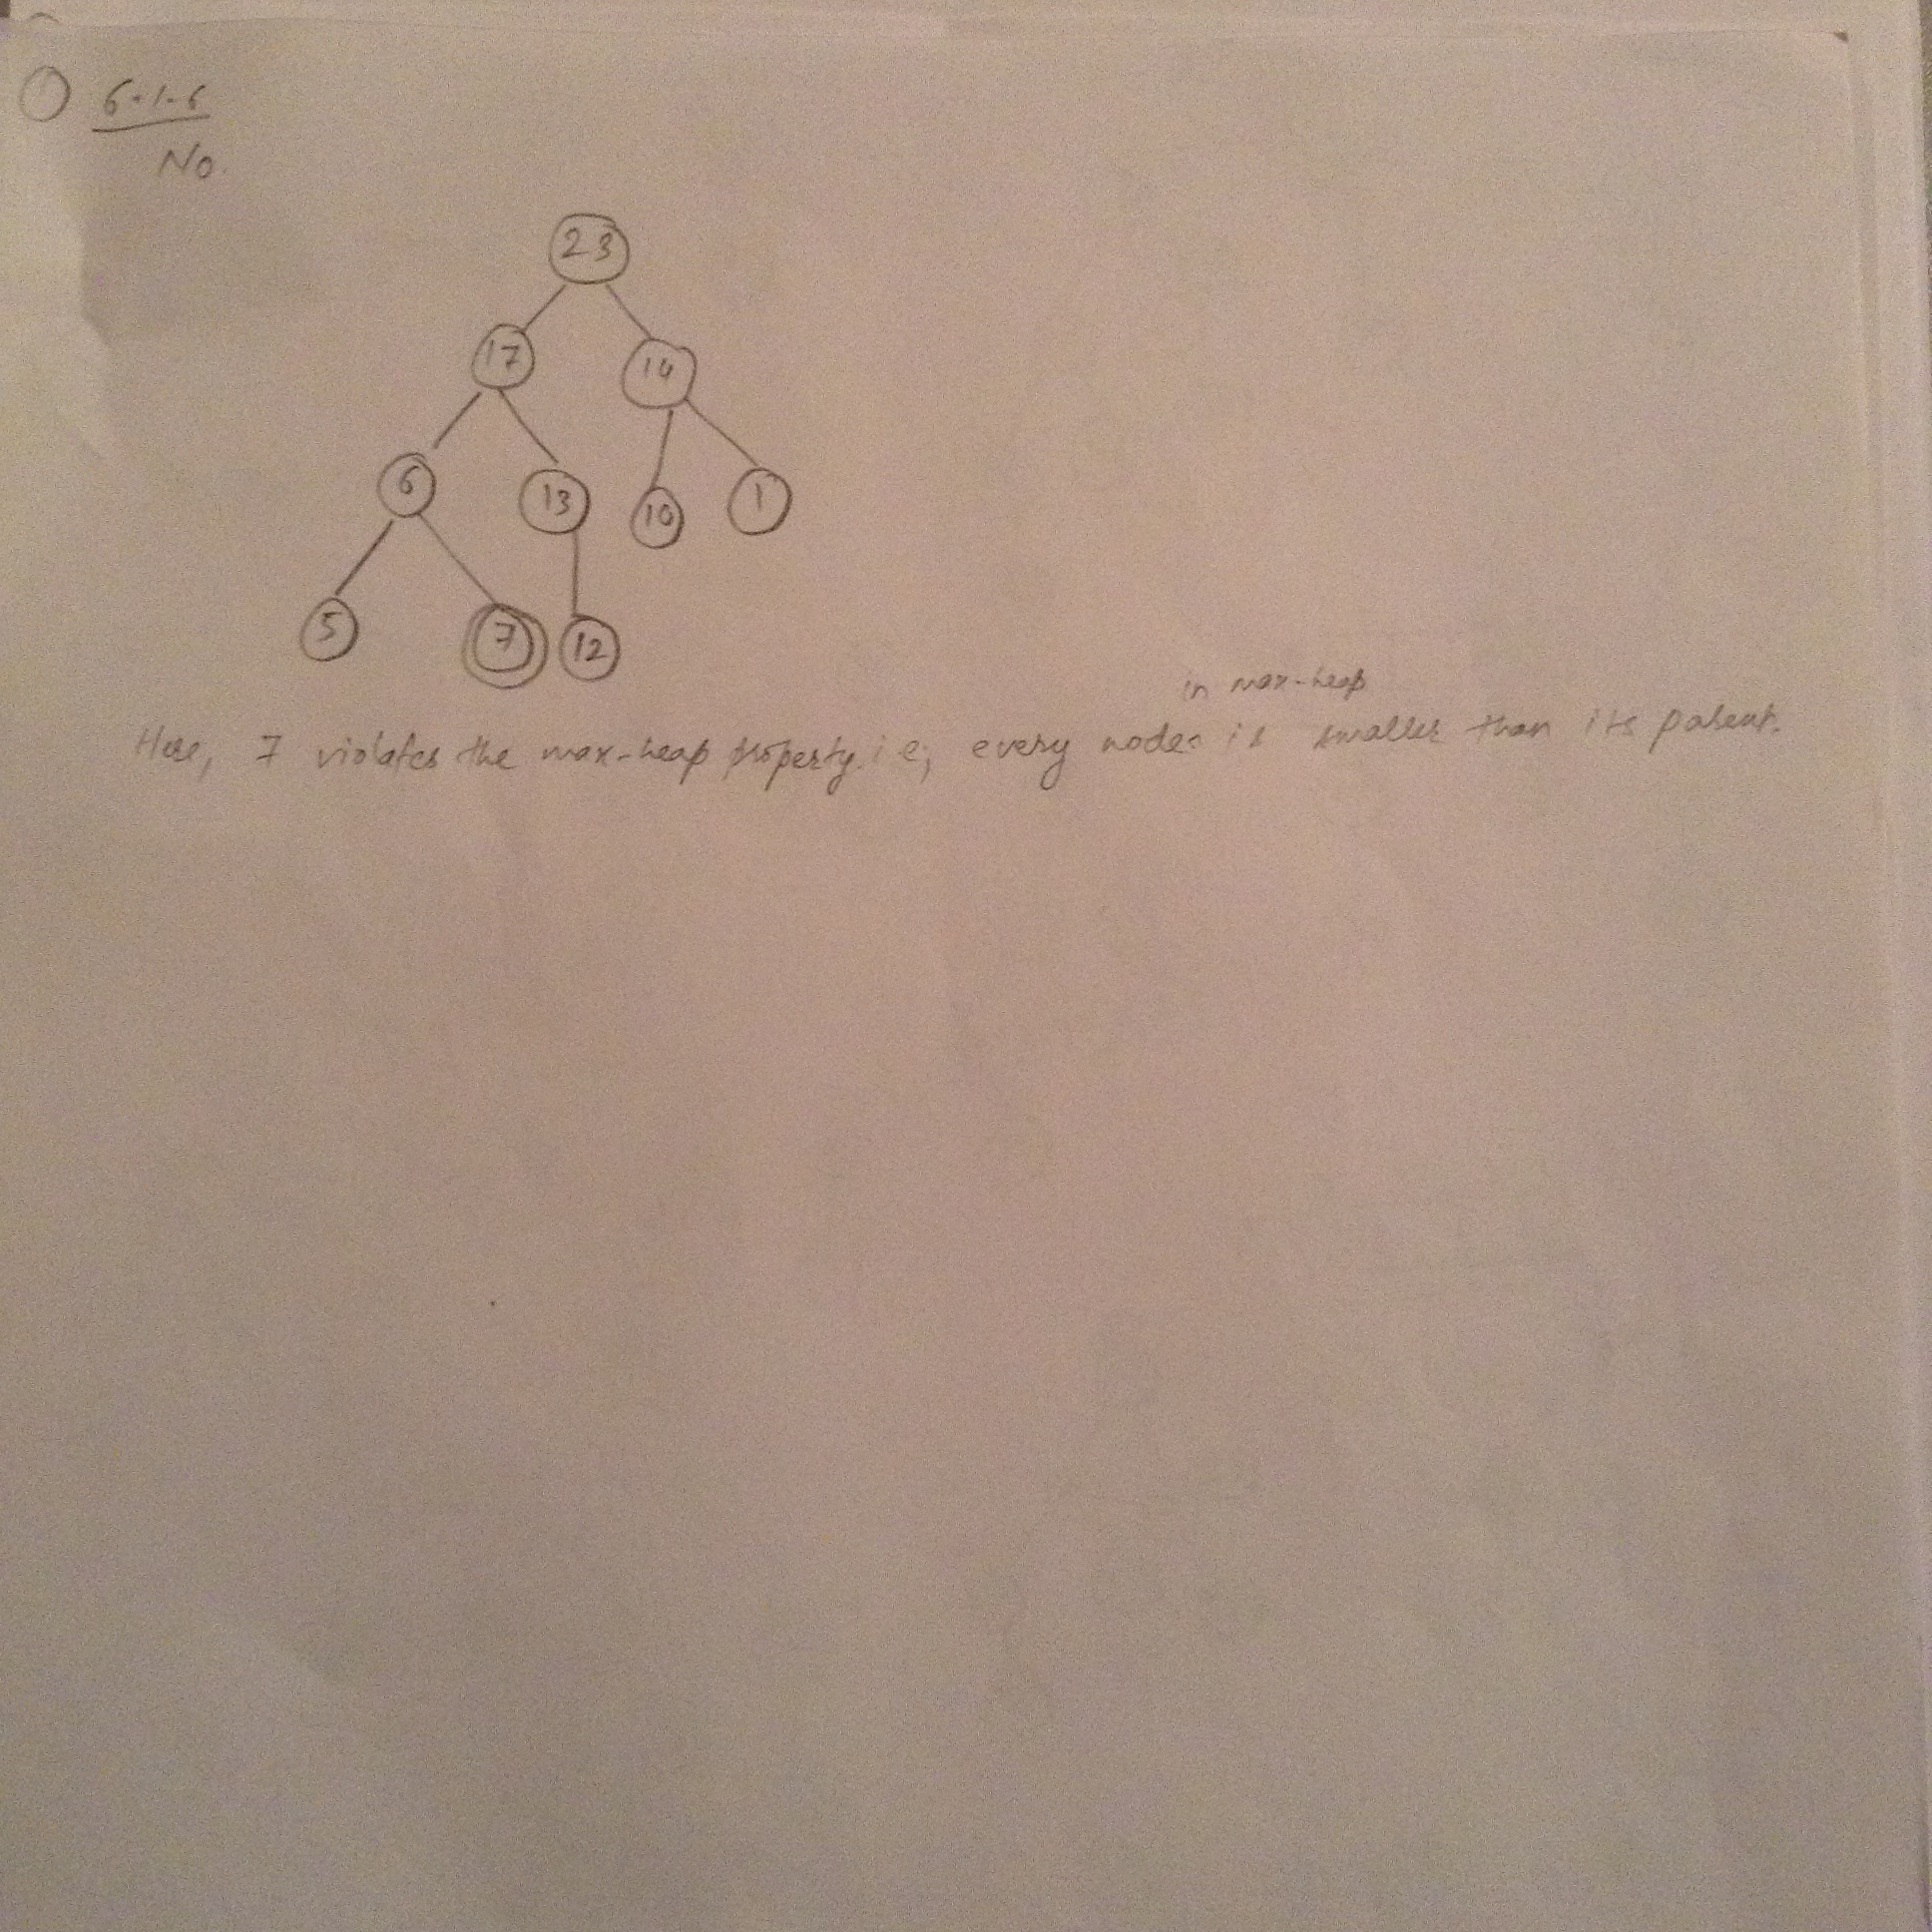 ① 6.1-6
No.
23
17 14
6 13 10 1
5 7 12
in max-heap
Here, 7 violates the max-heap property. i.e; every node is smaller than its parent.